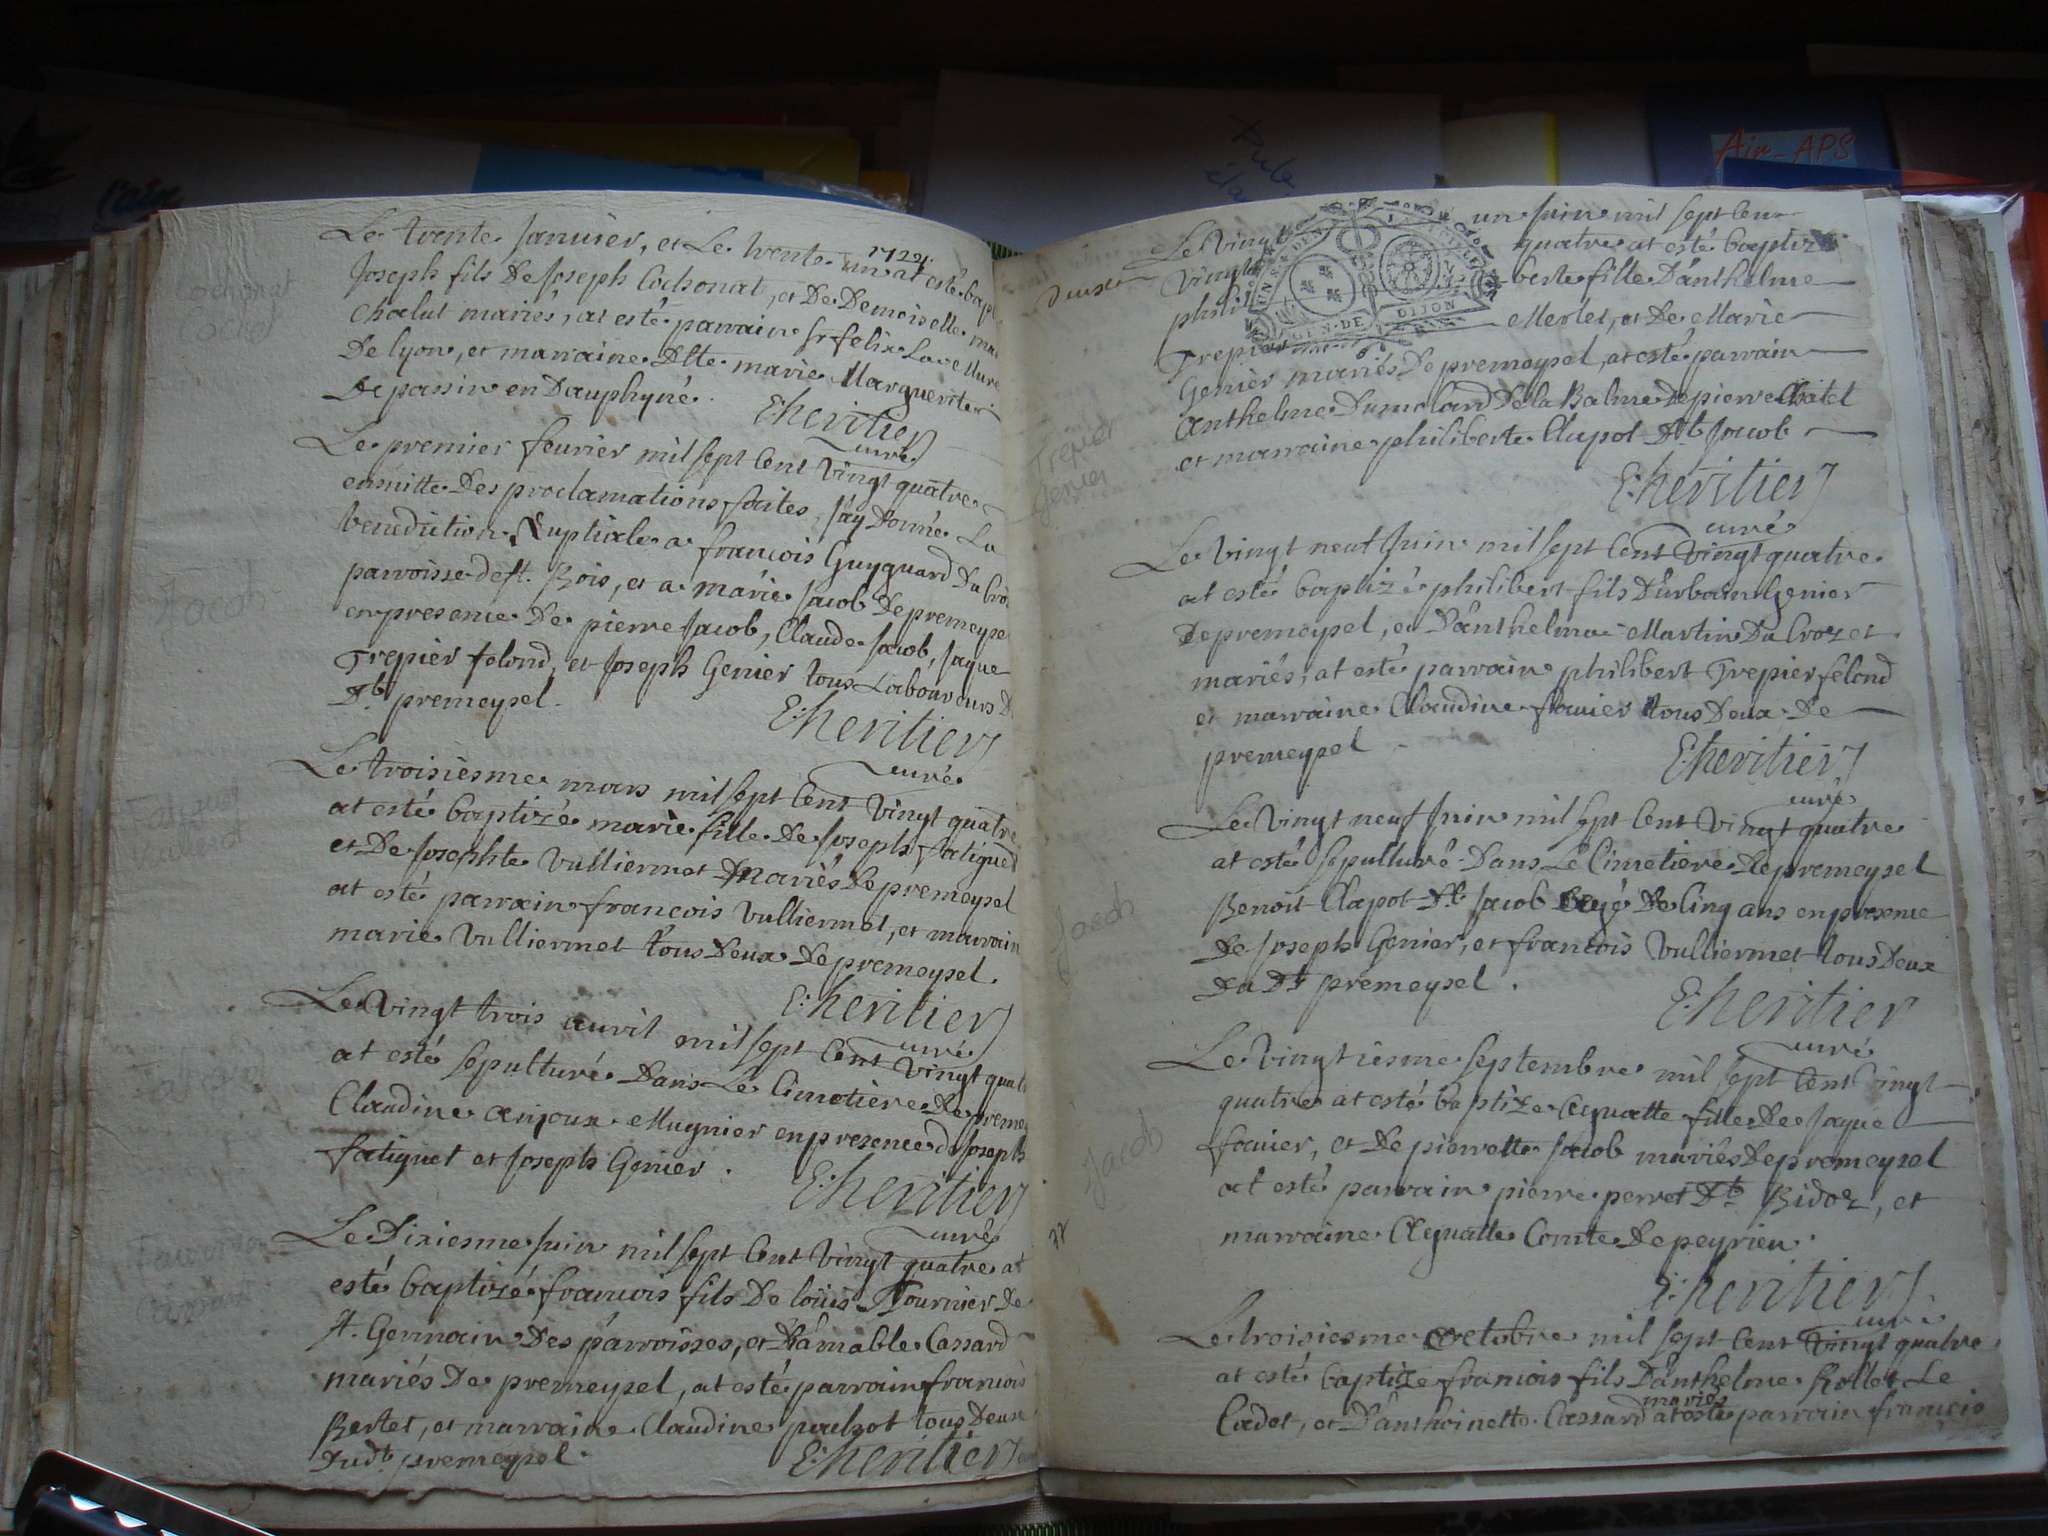 Le trente Janvier, et Le trente un at esté bapt
1724.
Joseph fils De Joseph Cochonat, et De Demoiselle ma
Chalut mariés, at esté parrain sr felix La Mure
De lyon, et marraine Dlle marie Marguerite
De passin en Dauphyné.
E: heritier
curé
Le premier feurier mil sept Cent Vingt quatre
ensuitte Des proclamations faites, J'ay Donné La
benediction Nuptiale a francois Guyguard Du
parroisse de st. Bois, et a marie Jacob De premeysel
en presence De pierre Jacob, Claude Jacob, Jaque
Trepier felond, et Joseph Genier tous Laboureurs D
Dt. premeysel.
E: heritier
curé
Le troisiesme mars mil sept Cent Vingt quatre
at esté baptizé marie fille De Joseph fatiguet
et De Josephte Vulliermet mariés De premeysel
at esté parrain francois Vulliermet, et marrain
marie Vulliermet tous Deux De premeysel.
E: heritier
curé
Le Vingt trois auril mil sept Cent Vingt quatr
at esté sepulturé Dans Le Cimetiere De preme
Claudine anjoux Mugnier en presence d Joseph
fatiguet et Joseph Genier.
E: heritier
curé
Le Dixiesme Juin mil sept Cent Vingt quatre at
esté baptizé francois fils De loüis fournier De
st. Germain Des parroisses, et D'amable Cassard
mariés De premeysel, at esté parrain francois
Bertet, et marraine Claudine tous Deux
Dudt. premeysel.
E: heritier
Le Vingt un Juin mil sept Cent
Vingt quatre at esté baptizé
phili berte fille D'anthelme
Mertet, et De Marie
Trepier
GEN. DE DIJON
Genier mariés De premeysel, at esté parrain
anthelme Dumolard De la Balme De pierre Chatel
et marraine philiberte Clapot Dt. Jacob
E: heritier
curé
Trepier
Genier
Le Vingt neuf Juin mil sept Cent Vingt quatre
at esté baptizé philibert fils D'urbain Genier
De premeysel, et D'anthelma Martin Du Crozet
mariés, at esté parrain philibert Trepier felond
et marraine Claudine fauier tous Deux De
premeysel
E: heritier
curé
Le Vingt neuf Juin mil sept Cent Vingt quatre
at esté sepulturé Dans Le Cimetiere De premeysel
Benoit Clapot Dt. Jacob agé De Cinq ans en presence
De Joseph Genier, et francois Vulliermet tous Deux
Du Dt. premeysel.
E: heritier
curé
Jacob
Le Vingtiesme septembre mil sept Cent Vingt
quatre at esté baptizé fille De Jaque
fauier, et De pierrette Jacob mariés De premeysel
at esté parrain pierre perret Dt. Bidoz, et
marraine Comte De peyrieu.
E: heritier
curé
Jacob
Le troisiesme octobre mil sept Cent Vingt quatre
at esté baptizé francois fils D'anthelme Rollet Le
Cadet, et D'anthoinette Cassard mariés at esté parrain francois
Air-APS
l'ain